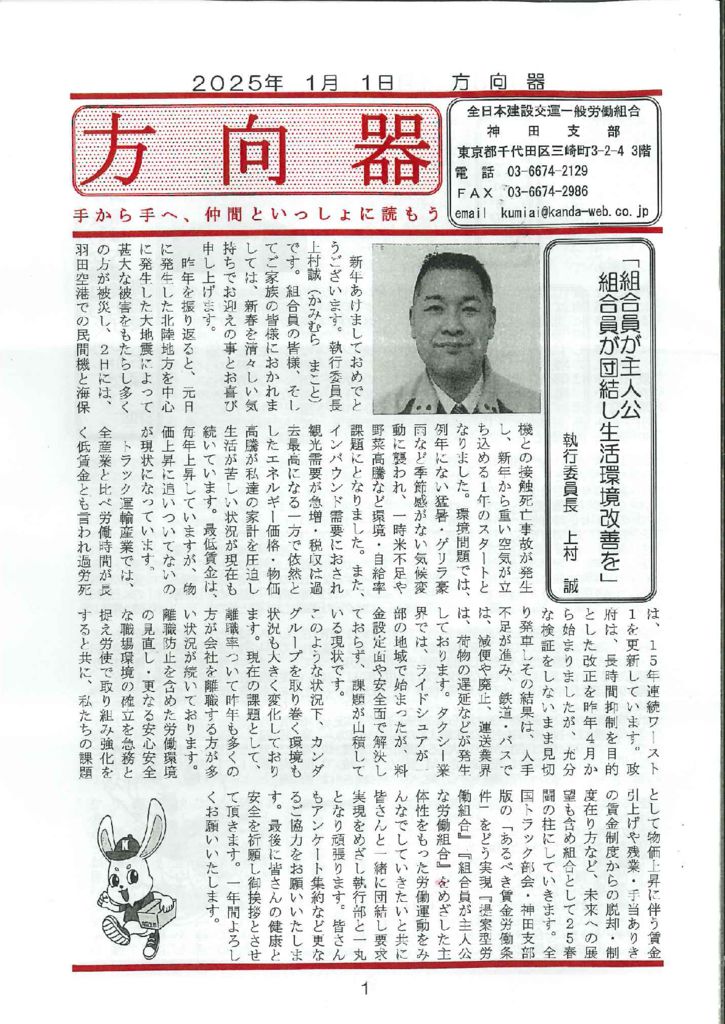 2025年 1月 1日 方向器
方向器
手から手へ、仲間といっしょに読もう
全日本建設交運一般労働組合
神田支部
東京都千代田区三崎町3-2-4 3階
電話 03-6674-2129
FAX 03-6674-2986
email kumiai@kanda-web.co.jp
「組合員が主人公
組合員が団結し生活環境改善を」
執行委員長 上村 誠
新年あけましておめでと
うございます。執行委員長
上村誠(かみむら まこと)
です。組合員の皆様、そし
てご家族の皆様におかれま
しては、新春を清々しい気
持ちでお迎えの事とお喜び
申し上げます。
昨年を振り返ると、元日
に発生した北陸地方を中心
に発生した大地震によって
甚大な被害をもたらし多く
の方が被災し、2日には、
羽田空港での民間機と海保
機との接触死亡事故が発生
し、新年から重い空気が立
ち込める1年のスタートと
なりました。環境問題では、
例年にない猛暑・ゲリラ豪
雨など季節感がない気候変
動に襲われ、一時米不足や
野菜高騰など環境・自給率
課題にとなりました。また、
インバウンド需要におされ
観光需要が急増・税収は過
去最高になる一方で依然と
したエネルギー価格・物価
高騰が私達の家計を圧迫し
生活が苦しい状況が現在も
続いています。最低賃金は、
毎年上昇していますが、物
価上昇に追いついてないの
が現状になっています。
トラック運輸産業では、
全産業と比べ労働時間が長
く低賃金とも言われ過労死
は、15年連続ワースト
1を更新しています。政
府は、長時間抑制を目的
とした改正を昨年4月か
ら始まりましたが、充分
な検証をしないまま見切
り発車しその結果は、人手
不足が進み、鉄道・バスで
は、減便や廃止、運送業界
は、荷物の遅延などが発生
しております。タクシー業
界では、ライドシェアが一
部の地域で始まったが、料
金設定面や安全面で解決し
ておらず、課題が山積して
いる現状です。
このような状況下、カンダ
グループを取り巻く環境も
状況も大きく変化しており
ます。現在の課題として、
離職率ついて昨年も多くの
方が会社を離職する方が多
い状況が続いております。
離職防止を含めた労働環境
の見直し・更なる安心安全
な職場環境の確立を急務と
捉え労使で取り組み強化を
すると共に、私たちの課題
として物価上昇に伴う賃金
引上げや残業・手当ありき
の賃金制度からの脱却・制
度在り方など、未来への展
望も含め組合として25春
闘の柱にしていきます。全
国トラック部会・神田支部
版の「あるべき賃金労働条
件」をどう実現『提案型労
働組合』『組合員が主人公
な労働組合』をめざした主
体性をもった労働運動をみ
んなでしていきたいと共に
皆さんと一緒に団結し要求
実現をめざし執行部と一丸
となり頑張ります。皆さん
もアンケート集約など更な
るご協力をお願いいたしま
す。最後に皆さんの健康と
安全を祈願し御挨拶とさせ
て頂きます。一年間よろし
くお願いいたします。
1